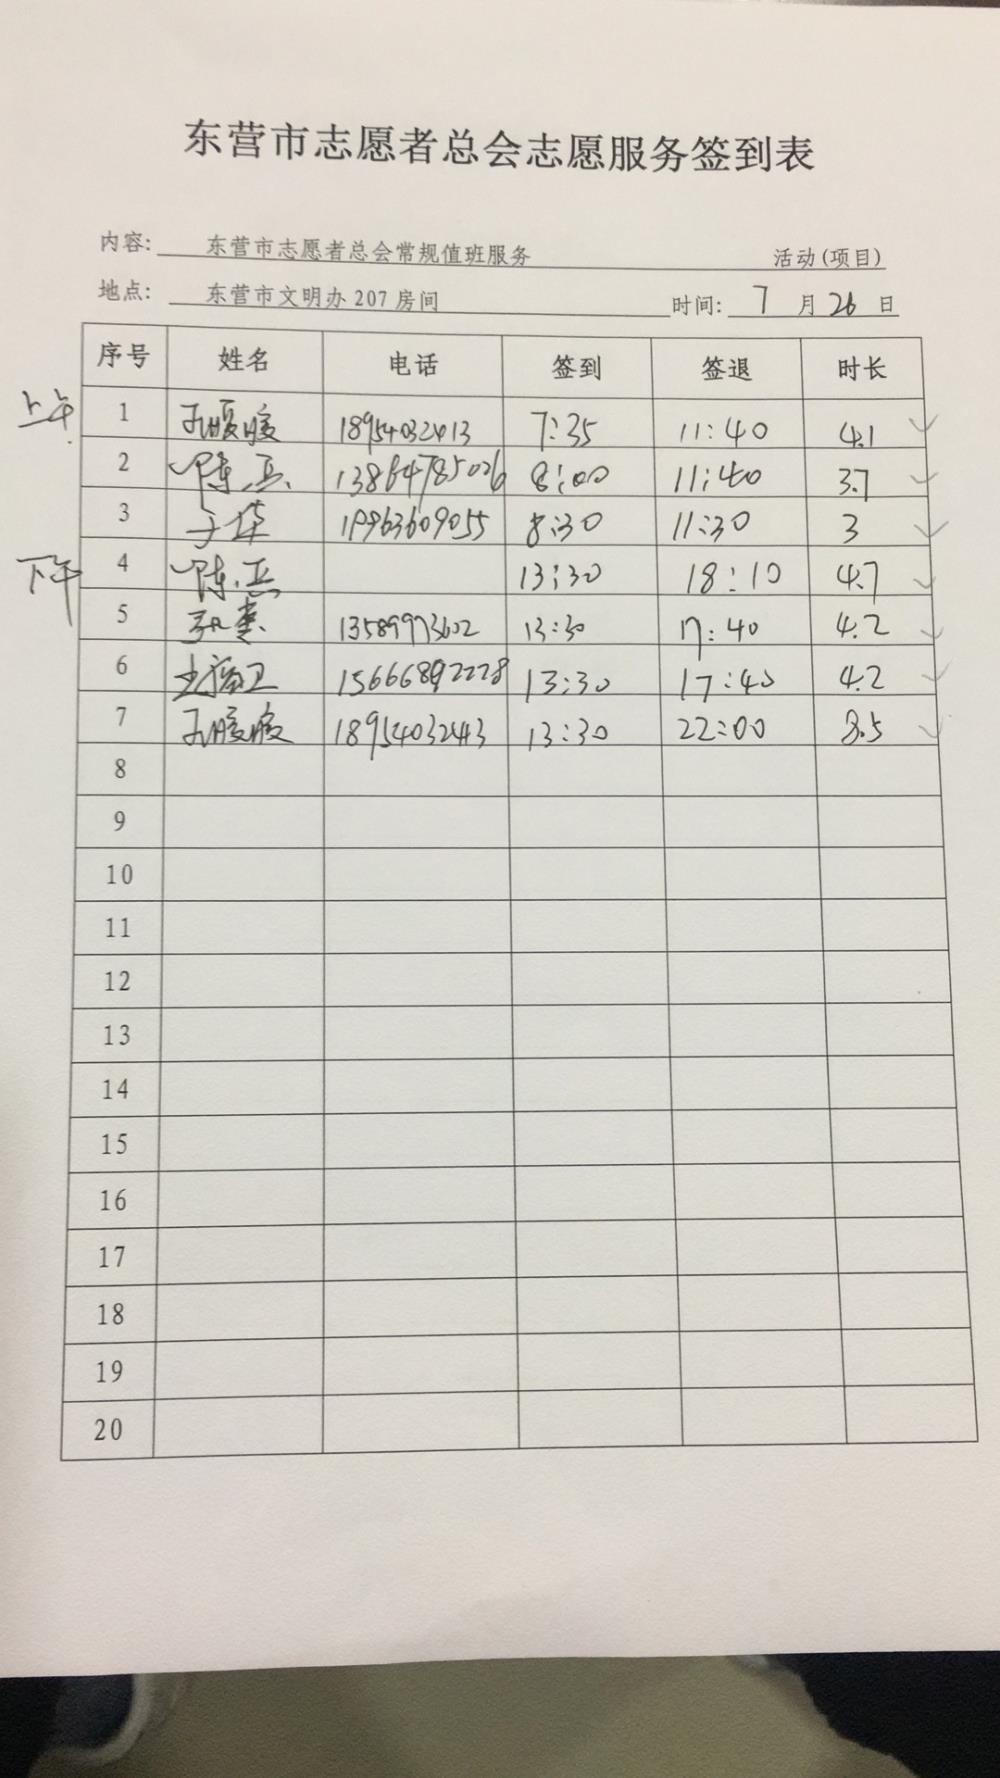 东营市志愿者总会志愿服务签到表
内容: 东营市志愿者总会常规值班服务 活动(项目)
地点: 东营市文明办 207 房间 时间: 7 月 26 日
序号 姓名 电话 签到 签退 时长
上午 1 18954032413 7:35 11:40 4.1
2 陈 13864785026 8:00 11:40 3.7
3 于华 8:30 11:30 3
下午 4 陈 13:30 18:10 4.7
5 13589973602 13:30 17:40 4.2
6 卫 15666892228 13:30 17:40 4.2
7 18954032413 13:30 22:00 8.5
8
9
10
11
12
13
14
15
16
17
18
19
20